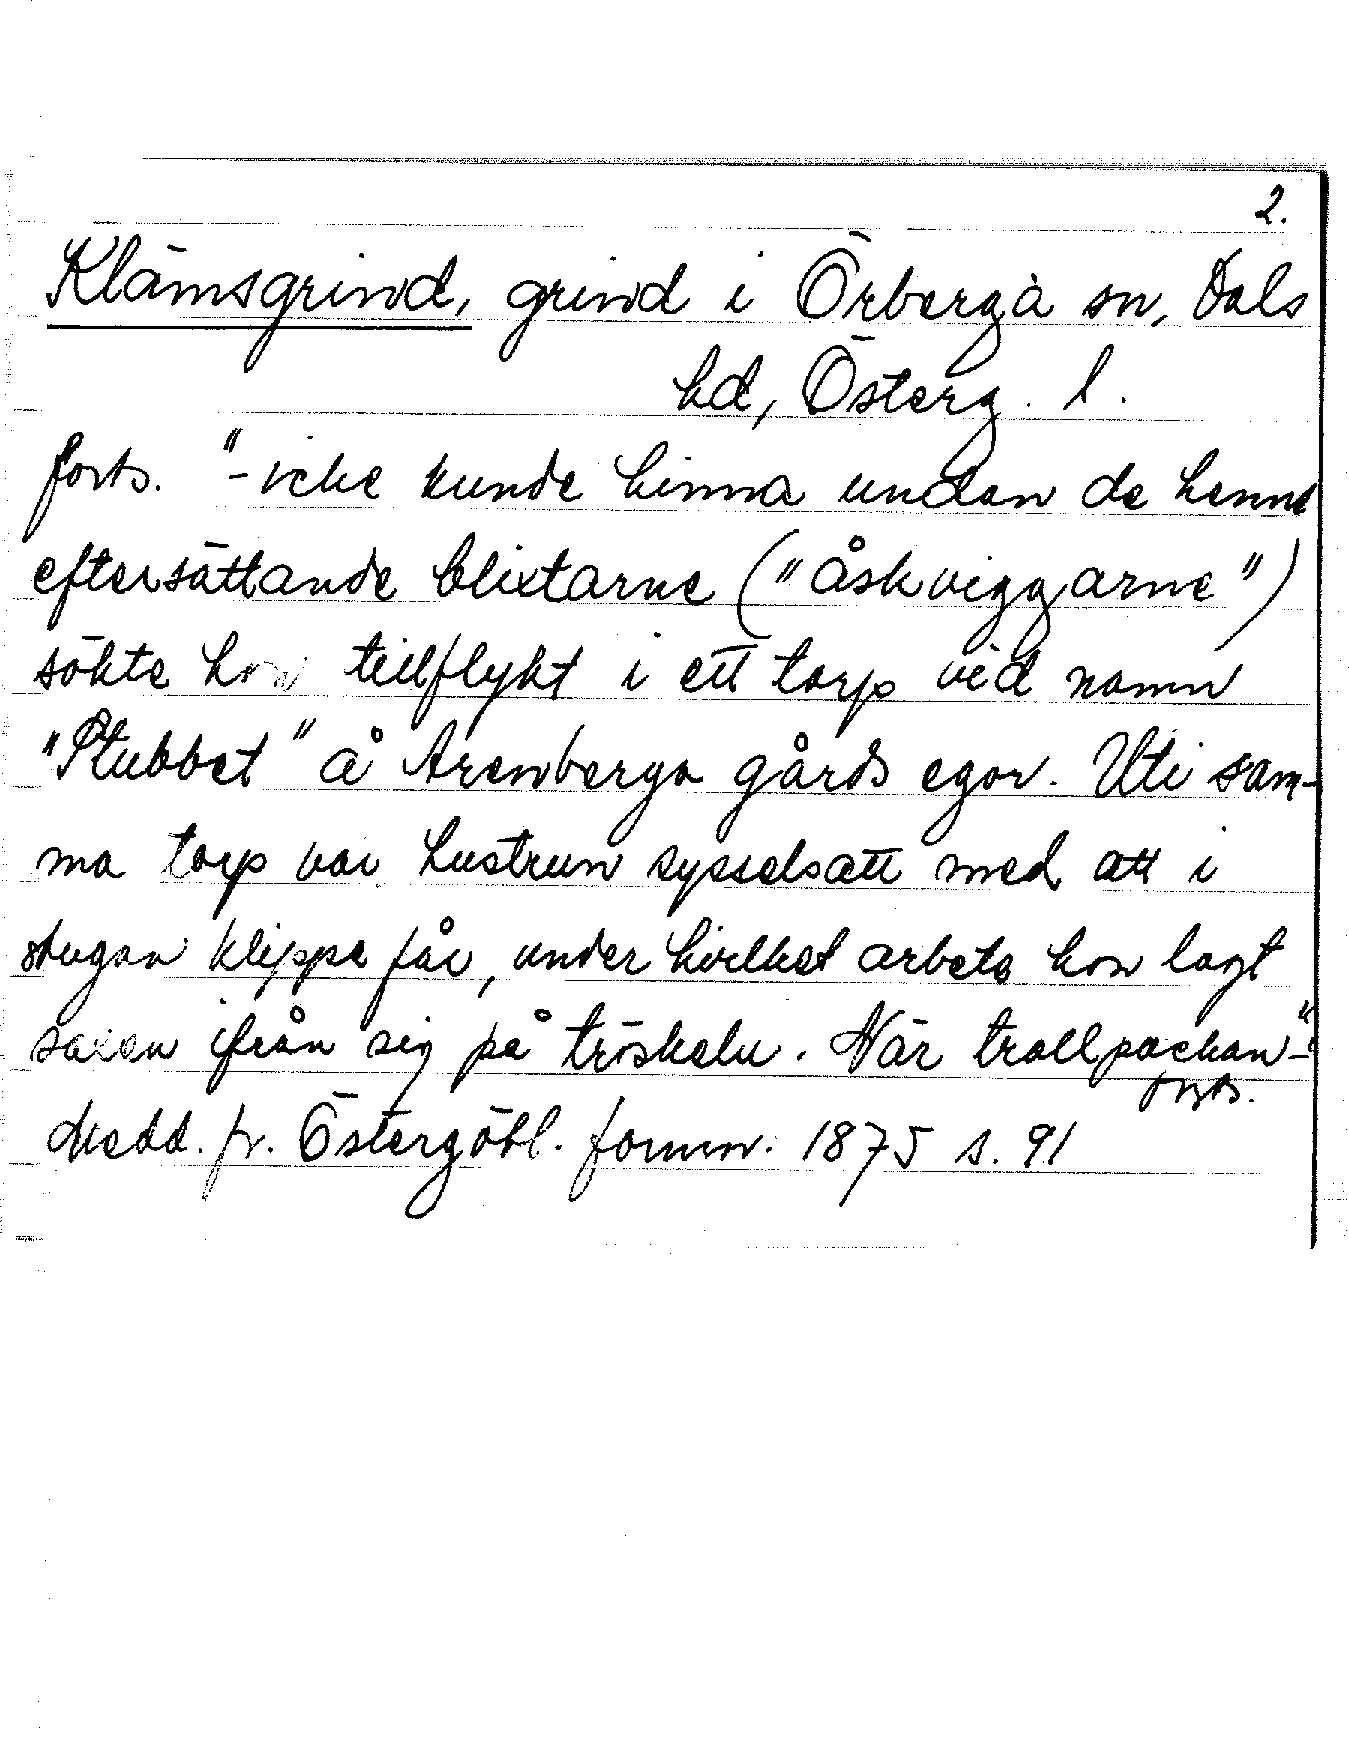 2.
Klämsgrind, grind i Örberga sn, Dals
hd, Österg. l.
forts. "- icke kunde hinna undan de henne
eftersättande blixtarne ("åskviggarne")
sökte hon tillflykt i ett torp vid namn
"Stubbet" å Arenberga gårds egor. Uti sam-
ma torp var hustrun sysselsatt med att i
stugan klippa får, under hvilket arbete hon lagt
saxen ifrån sig på tröskeln. När trollpackan -"
forts.
Medd. fr. Östergötl. fornm. 1875 s. 91